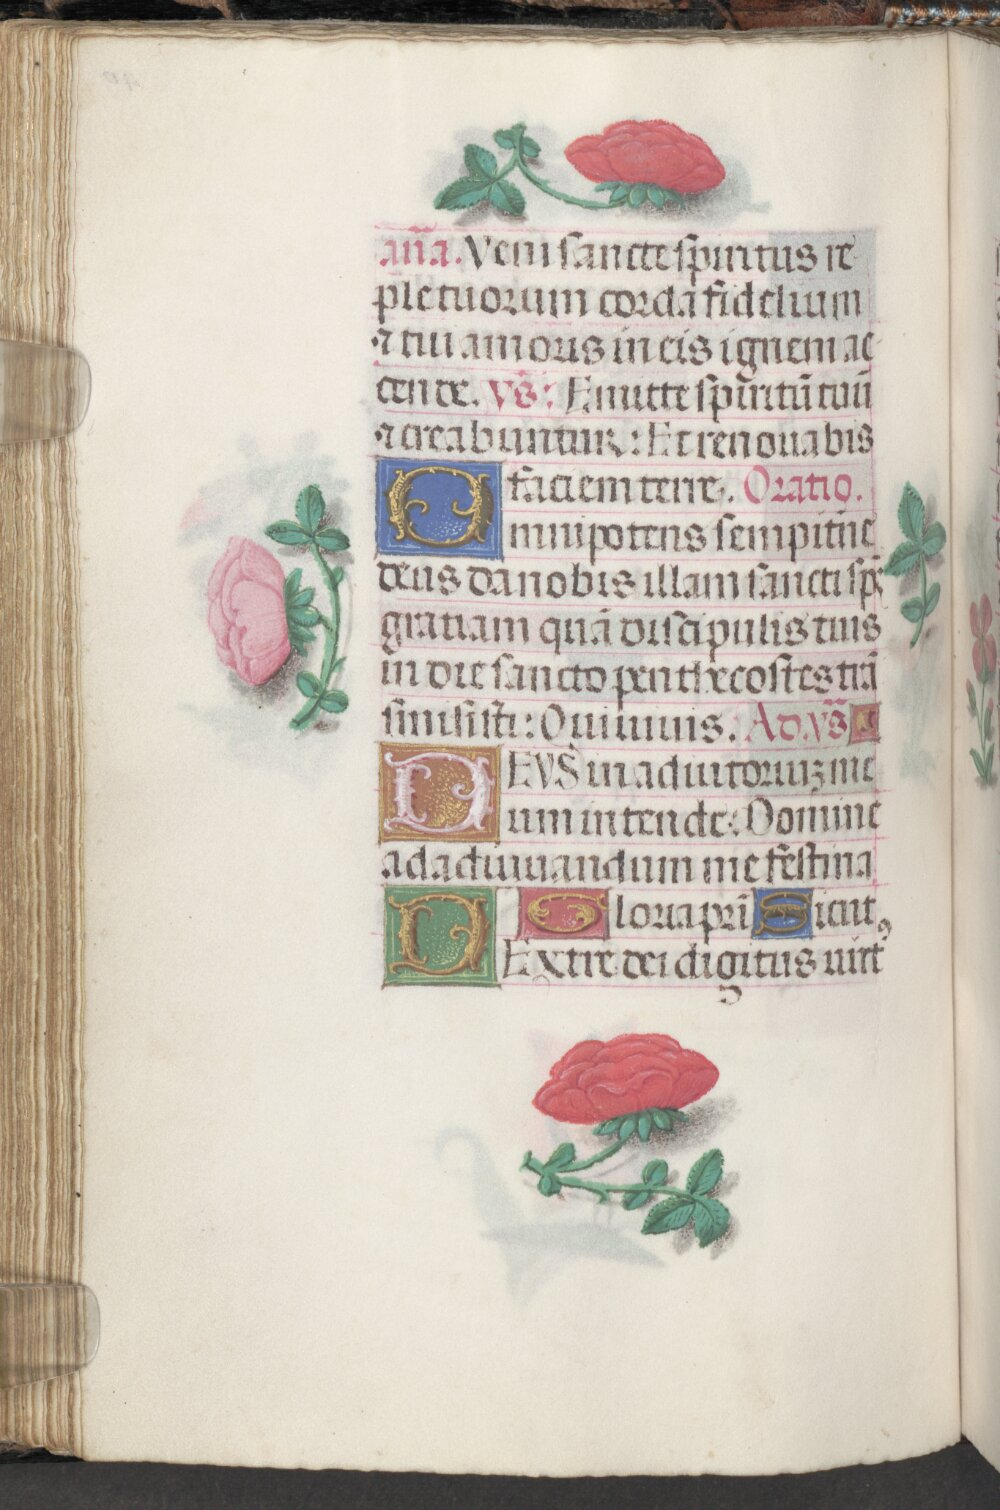 an̄a. Veni sancte spiritus re
ple tuorum corda fidelium
⁊ tui amoris in eis ignem ac
cende. Vs̄: Emitte spiritū tuū
⁊ creabuntur: Et renouabis
faciem terre. Oratio.
Omnipotens sempit̄ne
deus da nobis illam sancti sp̄s
gratiam quā discipulis tuis
in die sancto penthecostes trā
smisisti: Qui uiuis. Ad. Vs̄
DEVS in adiutoriuꝫ me
um intende: Domine
ad adiuuandum me festina
Gloria pr̄i Sicut
DExtre dei digitus uirt⁹